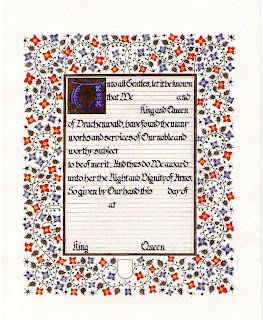 Unto all Gentles, let it be known
that We and
King and Queen
of Drachenwald, have found the many
works and services of Our noble and
worthy subject
to be of merit. And thus do We award
unto her the Right and Dignity of Arms.
So given by Our hand this day of
at
King Queen